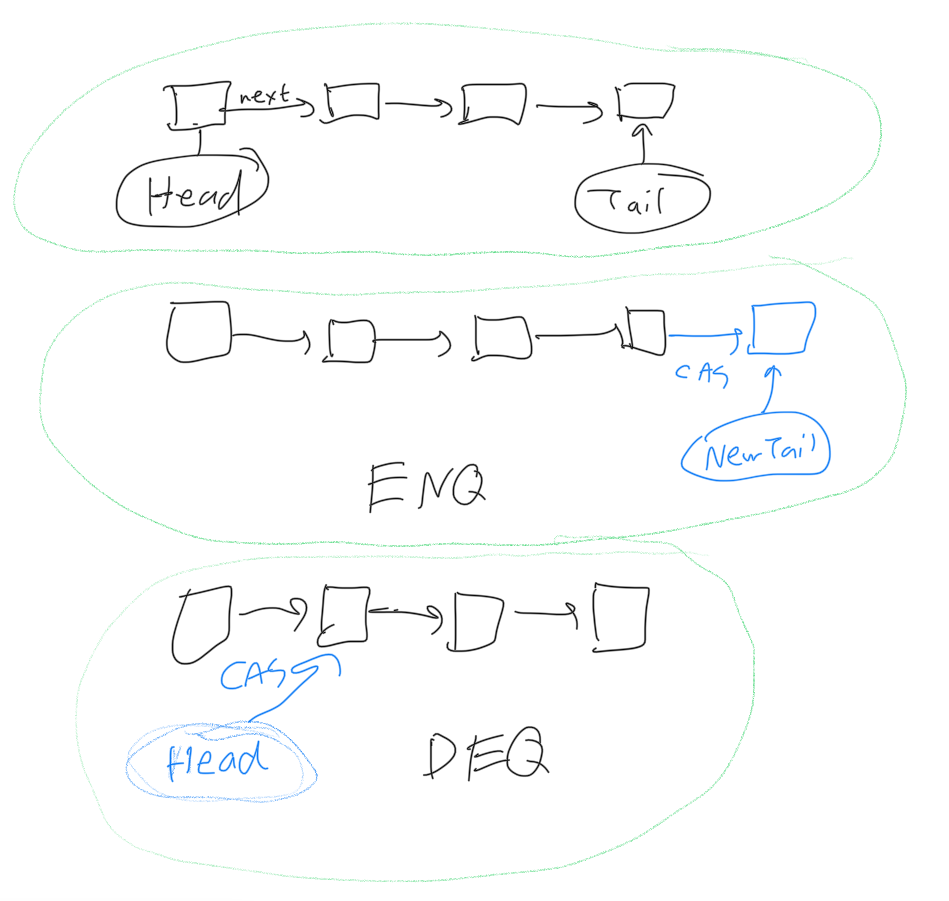 next
Head
Tail
CAS
New Tail
ENQ
CAS
Head
DEQ